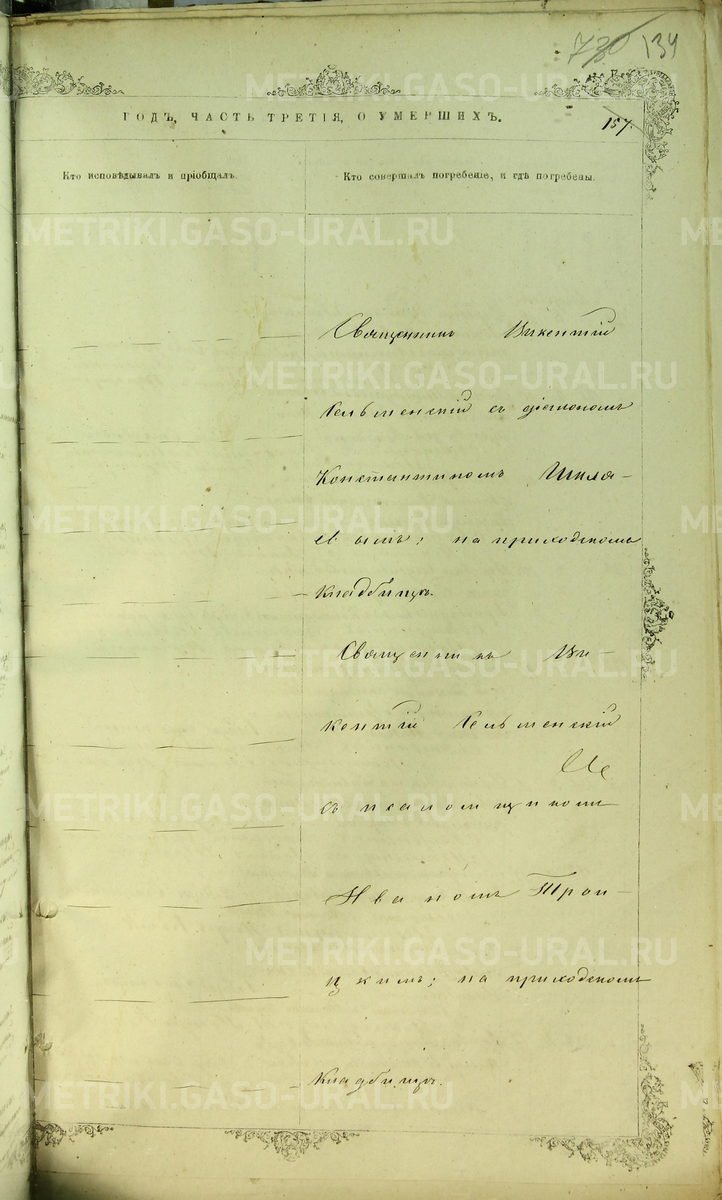 730 134
ГОДЪ, ЧАСТЬ ТРЕТІЯ, О УМЕРШИХЪ.
157.
Кто исповѣдывалъ и пріобщалъ.
Кто совершалъ погребеніе, и гдѣ погребены.
Священникъ Викентій
Сельменскій съ діакономъ
Константиномъ Шкля-
евымъ; на приходскомъ
кладбищѣ.
Священникъ Ви-
кентій Сельменскій
съ псаломщикомъ
Иваномъ Трои-
цкимъ; на приходскомъ
кладбищѣ.
METRIKI.GASO-URAL.RU